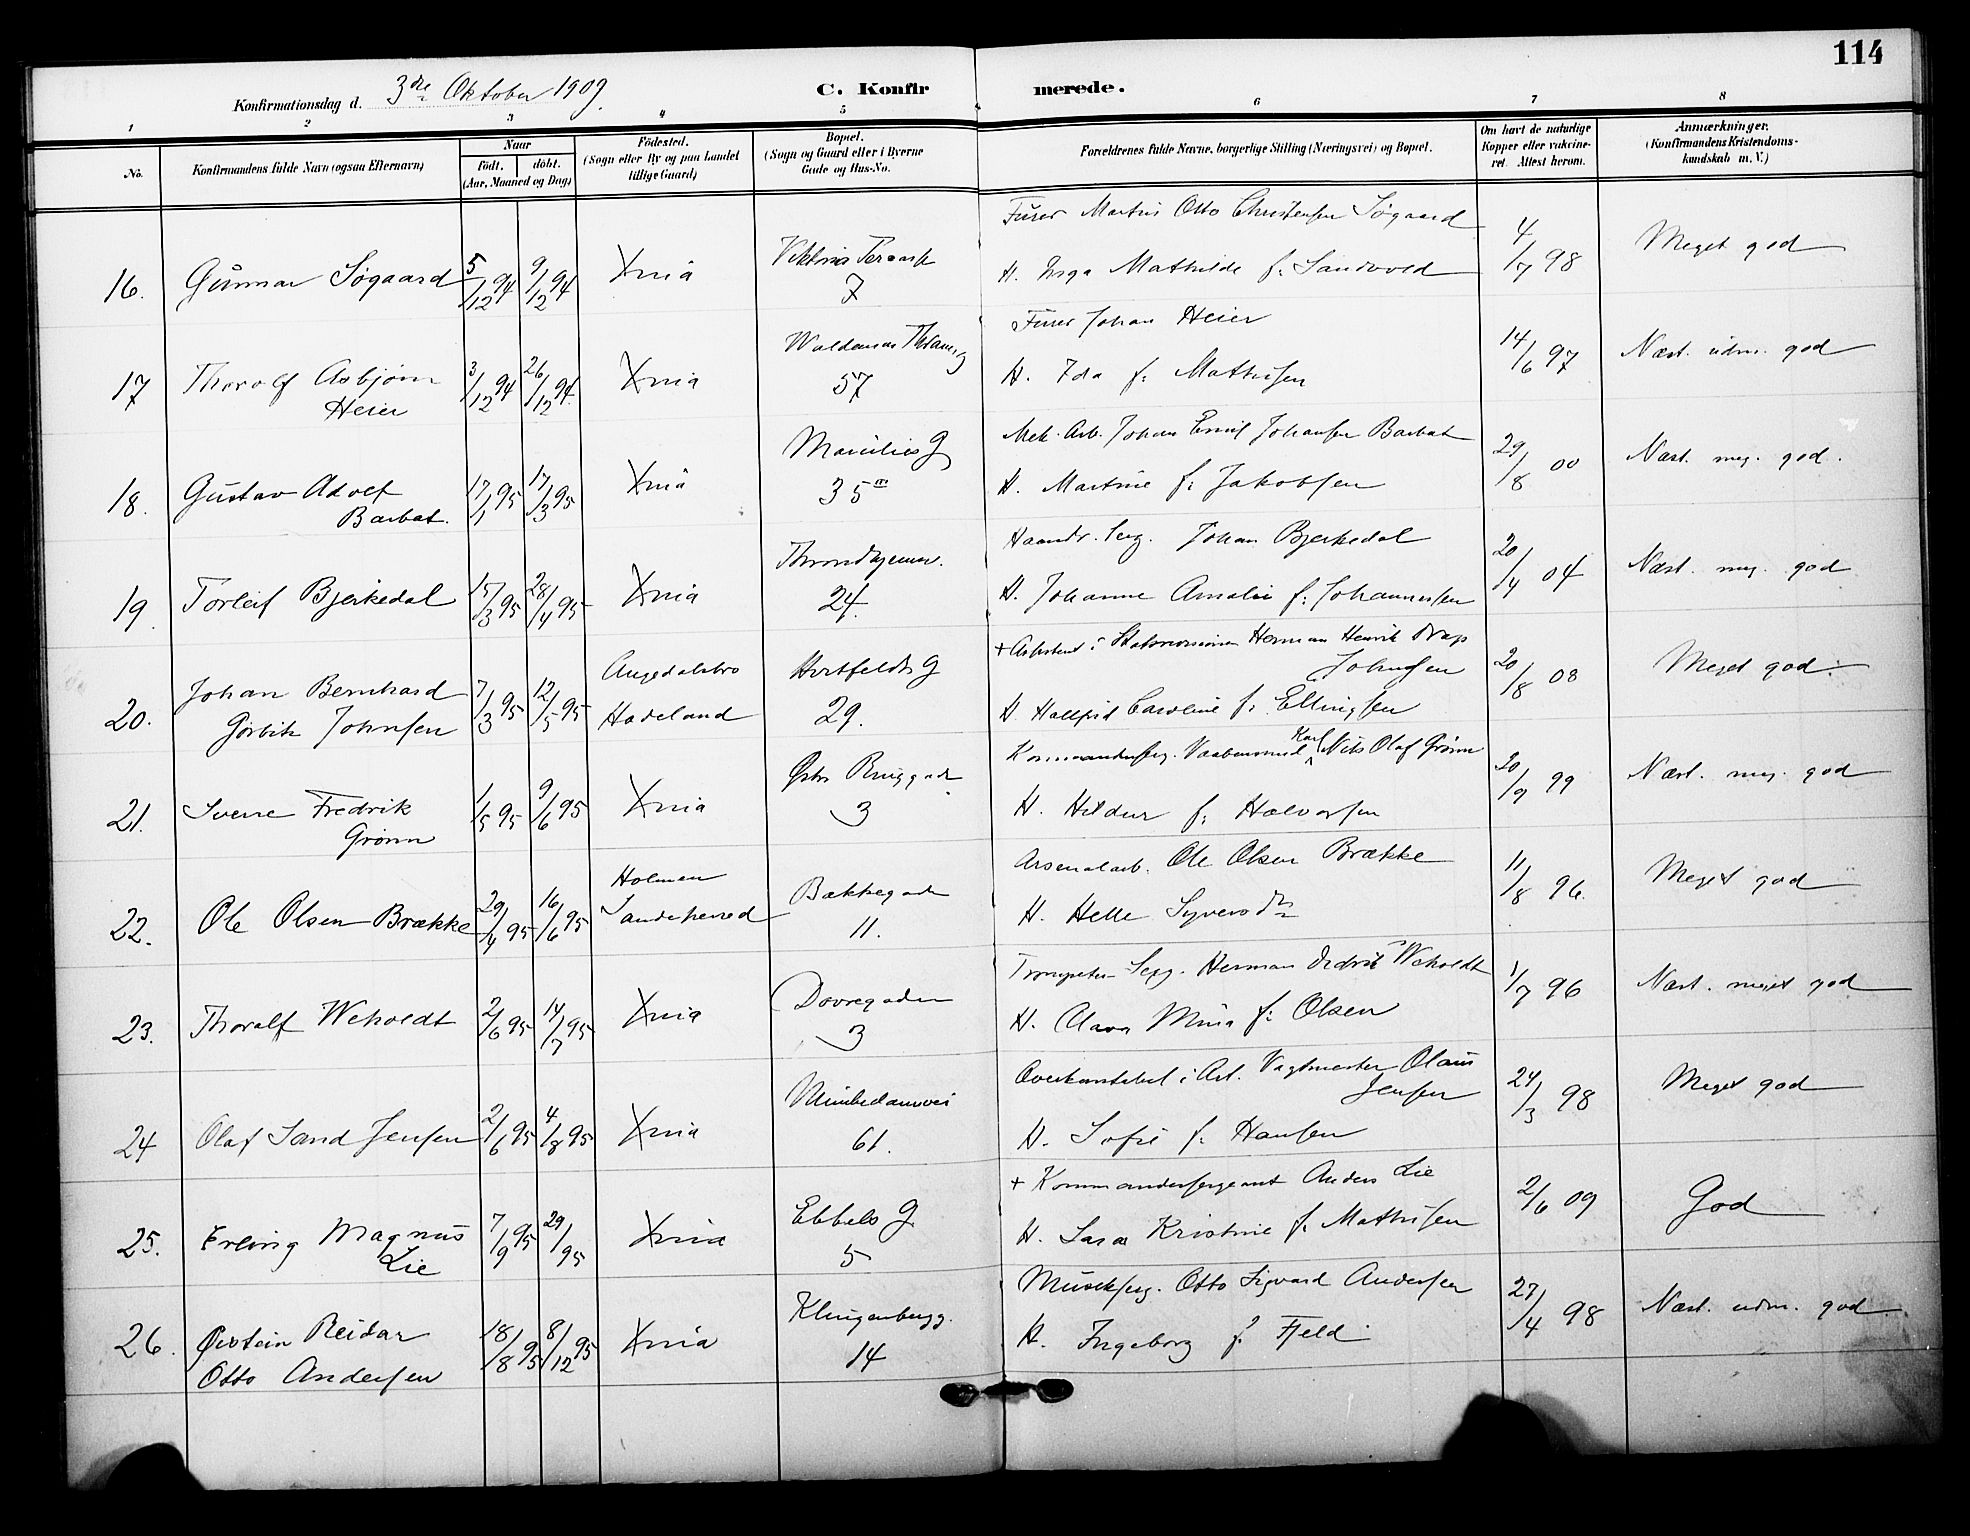 114
Konfirmationsdag d. 3die Oktober 1909. C. Konfirmerede.
1 2 3 4 5 6 7 8
No. Konfirmandens fulde Navn (ogsaa Efternavn) Naar født, døbt. (Aar, Maaned og Dag) Fødested. (Sogn eller By og paa Landet tillige Gaard) Bopæl. (Sogn og Gaard eller i Byerne Gade og Hus-No. Forældrenes fulde Navne, borgerlige Stilling (Næringsvei) og Bopæl. Om havt de naturlige Kopper eller vakcineret. Attest herom. Anmærkninger. (Konfirmandens Kristendomskundskab m. V.)
Furer Martin Otto Christensen Søgaard
16. Gunnar Søgaard 5/12 94 9/12 94 Xnia Viktoria Terasse 7 H. Inga Mathilde f. Sandvold 4/7 98 Meget god
Furer Johan Heier
17 Thorolf Asbjørn Heier 3/12 94 26/12 94 Xnia Waldemar Thranesg 57 H. Ida f. Mathisen 14/6 97 Næst. udm. god
Mek. Arb. Johan Emil Johansen Barbat
18. Gustav Adolf Barbat. 17/1 95 17/3 95 Xnia Maridalsg 35 H. Martine f. Jakobsen 29/8 00 Næst. meg. god.
Haandv. Serg. Johan Bjerkedal
19. Torleif Bjerkedal 15/3 95 28/4 95 Xnia Throndhjemsv. 24. H. Johanne Amalie f. Johannessen 20/4 04 Næst. meg. god
+ Assistent i Herman Henrik Johnsen
20. Johan Bernhard Johnsen 7/3 95 12/5 95 Hadeland Hertzbergs G 29. H. Caroline f. Ellingsen 20/8 08 Meget god.
Kommandersg. Karl Nils Olaf Grønn
21. Sverre Fredrik Grønn 1/5 95 9/6 95 Xnia Østre Bryggade 3 H. Hildur f. Halvorsen 20/9 99 Næst. meg. god
Arsenalarb. Ole Olsen Brække
22. Ole Olsen Brække 29/4 95 16/6 95 Holmen Sandeherred Bakkegaden 11. H. Helle Syversdr 11/8 96. Meget god
Trompeter Serg. Herman Wetholdt
23. Thoralf Wetholdt 2/6 95 14/7 95 Xnia Dovregaden 3 H. Clara Mina f. Olsen 1/7 96 Næst. meget god
Overkonstabel i Art. Vagtmester Olaus Jensen
24 Olaf Sand Jensen 2/6 95 4/8 95 Xnia Munkedamsvei 61. H. Sofie f. Hansen 24/3 98 Meget god
+ Kommandersergeant Anders Lie
25. Erling Magnus Lie 7/9 95 29/ 95 Xnia Ebbels G. 5 H. Sara Kristine f. Mathisen 2/6 09 God
Musikserg. Otto Sigvard Andersen
26. Øistein Reidar Otto Andersen 18/8 95 8/12 95 Xnia Klingenbergg. 14 H. Ingeborg f. Fjeld 27/4 98 Næst. udm. god.